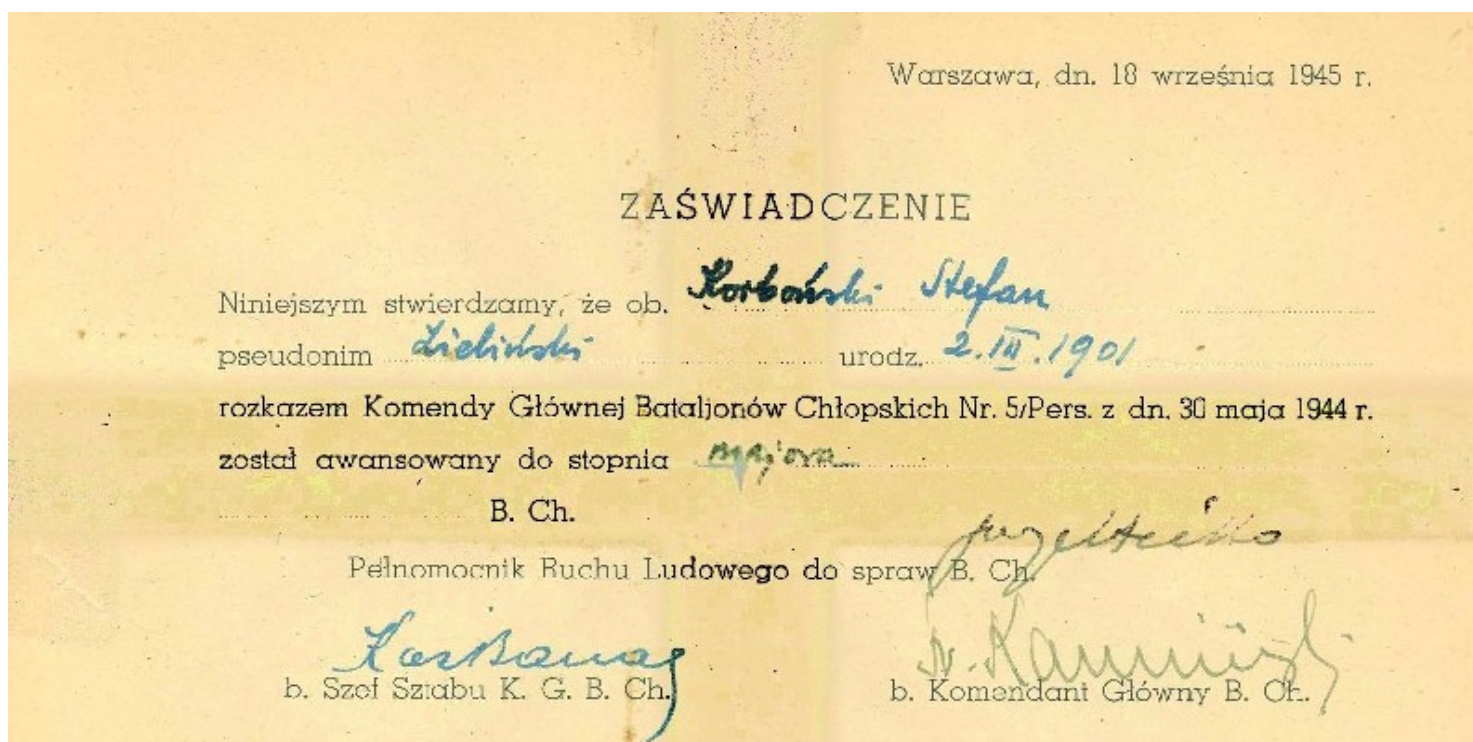 Warszawa, dn. 18 września 1945 r.
ZAŚWIADCZENIE
Niniejszym stwierdzamy, że ob. Korboński Stefan
pseudonim Zieliński urodz. 2.III.1901
rozkazem Komendy Głównej Bataljonów Chłopskich Nr. 5/Pers. z dn. 30 maja 1944 r.
został awansowany do stopnia majora
B. Ch.
Pełnomocnik Ruchu Ludowego do spraw B. Ch.
Kaz Banach
F. Kamiński
b. Szef Sztabu K. G. B. Ch.
b. Komendant Główny B. Ch.